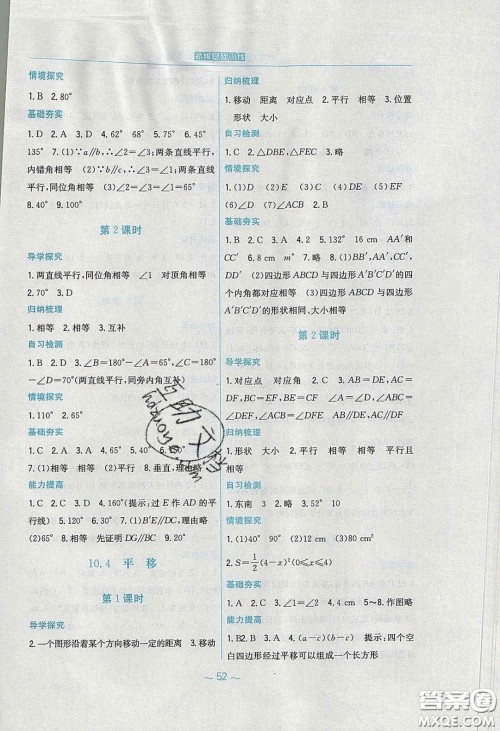 新编基础训练
情境探究
1.B 2.80°
基础夯实
1.D 2.A 3.D 4.62° 68° 5.75° 6.45°
135° 7.(1)∵a∥b,∴∠2=∠3;两条直线平行,
内错角相等 (2)∵b∥c,∴∠2=∠3;两条直线平
行,同位角相等 (3)∠1=∠2=∠3=65°
8.40° 9.100°
第2课时
导学探究
1.两直线平行,同位角相等 ∠1 对顶角相等
2.70° 3.D
归纳梳理
1.相等 2.相等 3.互补
自习检测
1.B 2.C 3.∠B=180°-∠A=65°,∠C=180°
-∠D=70°(两直线平行,同旁内角互补)
情境探究
1.110° 2.65°
基础夯实
1.C 2.A 3.B 4.45° 5.65° 6.65°
7.(1)相等 (2)平行 8.垂直,理由略
能力提高
1.C 2.D 3.C 4.160°(提示:过E作AD的平
行线) 5.120° 6.(1)B′E∥DC,理由略
(2)65° 先证明DG∥BC 9.65°
10.4 平移
第1课时
导学探究
2.一个图形沿着某个方向移动一定的距离 3.移动
归纳梳理
1.移动 距离 对应点 2.平行 相等 3.位置
形状 大小
自习检测
1.C 2.△DBE,△FEC 3.略
情境探究
1.(1)D (2)E (3)C (4)DE (5)EF
(6)D (7)∠DEF 2.C
基础夯实
1.B 2.C 3.A 4.2 5.132° 16 cm AA′和
CC′ 6.8 cm m° 7.略 8.(1)BB′,AA′,
CC′,DD′ 相等 (2)四边形ABCD与四边形
A′B′C′D′的四
个内角都对应相等 (3)四边形ABCD与四边形
A′B′C′D′的形状相同,大小相等
第2课时
导学探究
1.对应点 对应角 2.AB=DE,AC=DF,
BC=EF;∠BAC=∠EDF,∠ABC=
∠DEF,∠ACB=∠DFE;AB∥DE,AC∥DF
归纳梳理
1.形状 大小 2.相等 平行且相等 3.平行且
相等
自习检测
1.东南 3 2.略 3.略
情境探究
1.(1)40° 90° (2)12 cm (3)90°
2.S=1/2(4-x)²(0≤x≤4)
基础夯实
1.C 2.C 3.∠1=∠2 4.8 cm 5~8.作图略
能力提高
1.B 2.B 3.A 4.b(a-c)(b-c) 提示:四个
空白四边形经过平移可以组成一个长方形
~ 52 ~
答案圈
MXQE.COM